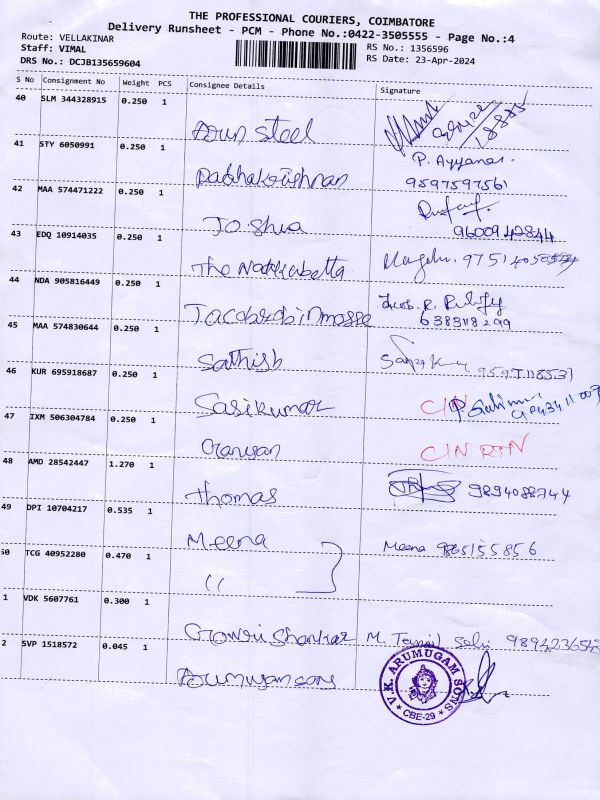 THE PROFESSIONAL COURIERS, COIMBATORE
Delivery Runsheet - PCM - Phone No.:0422-3505555 - Page No.:4
Route: VELLAKINAR
RS No.: 1356596
Staff: VIMAL
RS Date: 23-Apr-2024
DRS No.: DCJB135659604
S No Consignment No Weight PCS Consignee Details Signature
40 SLM 344328915 0.250 1
Arun steel
41 STY 6050991 0.250 1
P. Ayyanar.
Radhakrishnan 9597597561
42 MAA 574471222 0.250 1
Joshua 9600942844
43 EDQ 10914035 0.250 1
The
44 NDA 905816449 0.250 1
6383118299
45 MAA 574830644 0.250 1
Sathish
46 KUR 695918687 0.250 1
Sasikumar
47 IXM 506304784 0.250 1
C/N RTN
48 AMD 28542447 1.270 1
Thomas 9894088744
49 DPI 10704217 0.535 1
Meena Meena 9865155856
50 TCG 40952280 0.470 1
1 VDK 5607761 0.300 1
Gowri Shankar M. Tamil Selvi
2 SVP 1518572 0.045 1
V.K. ARUMUGAM SONS
CBE-29